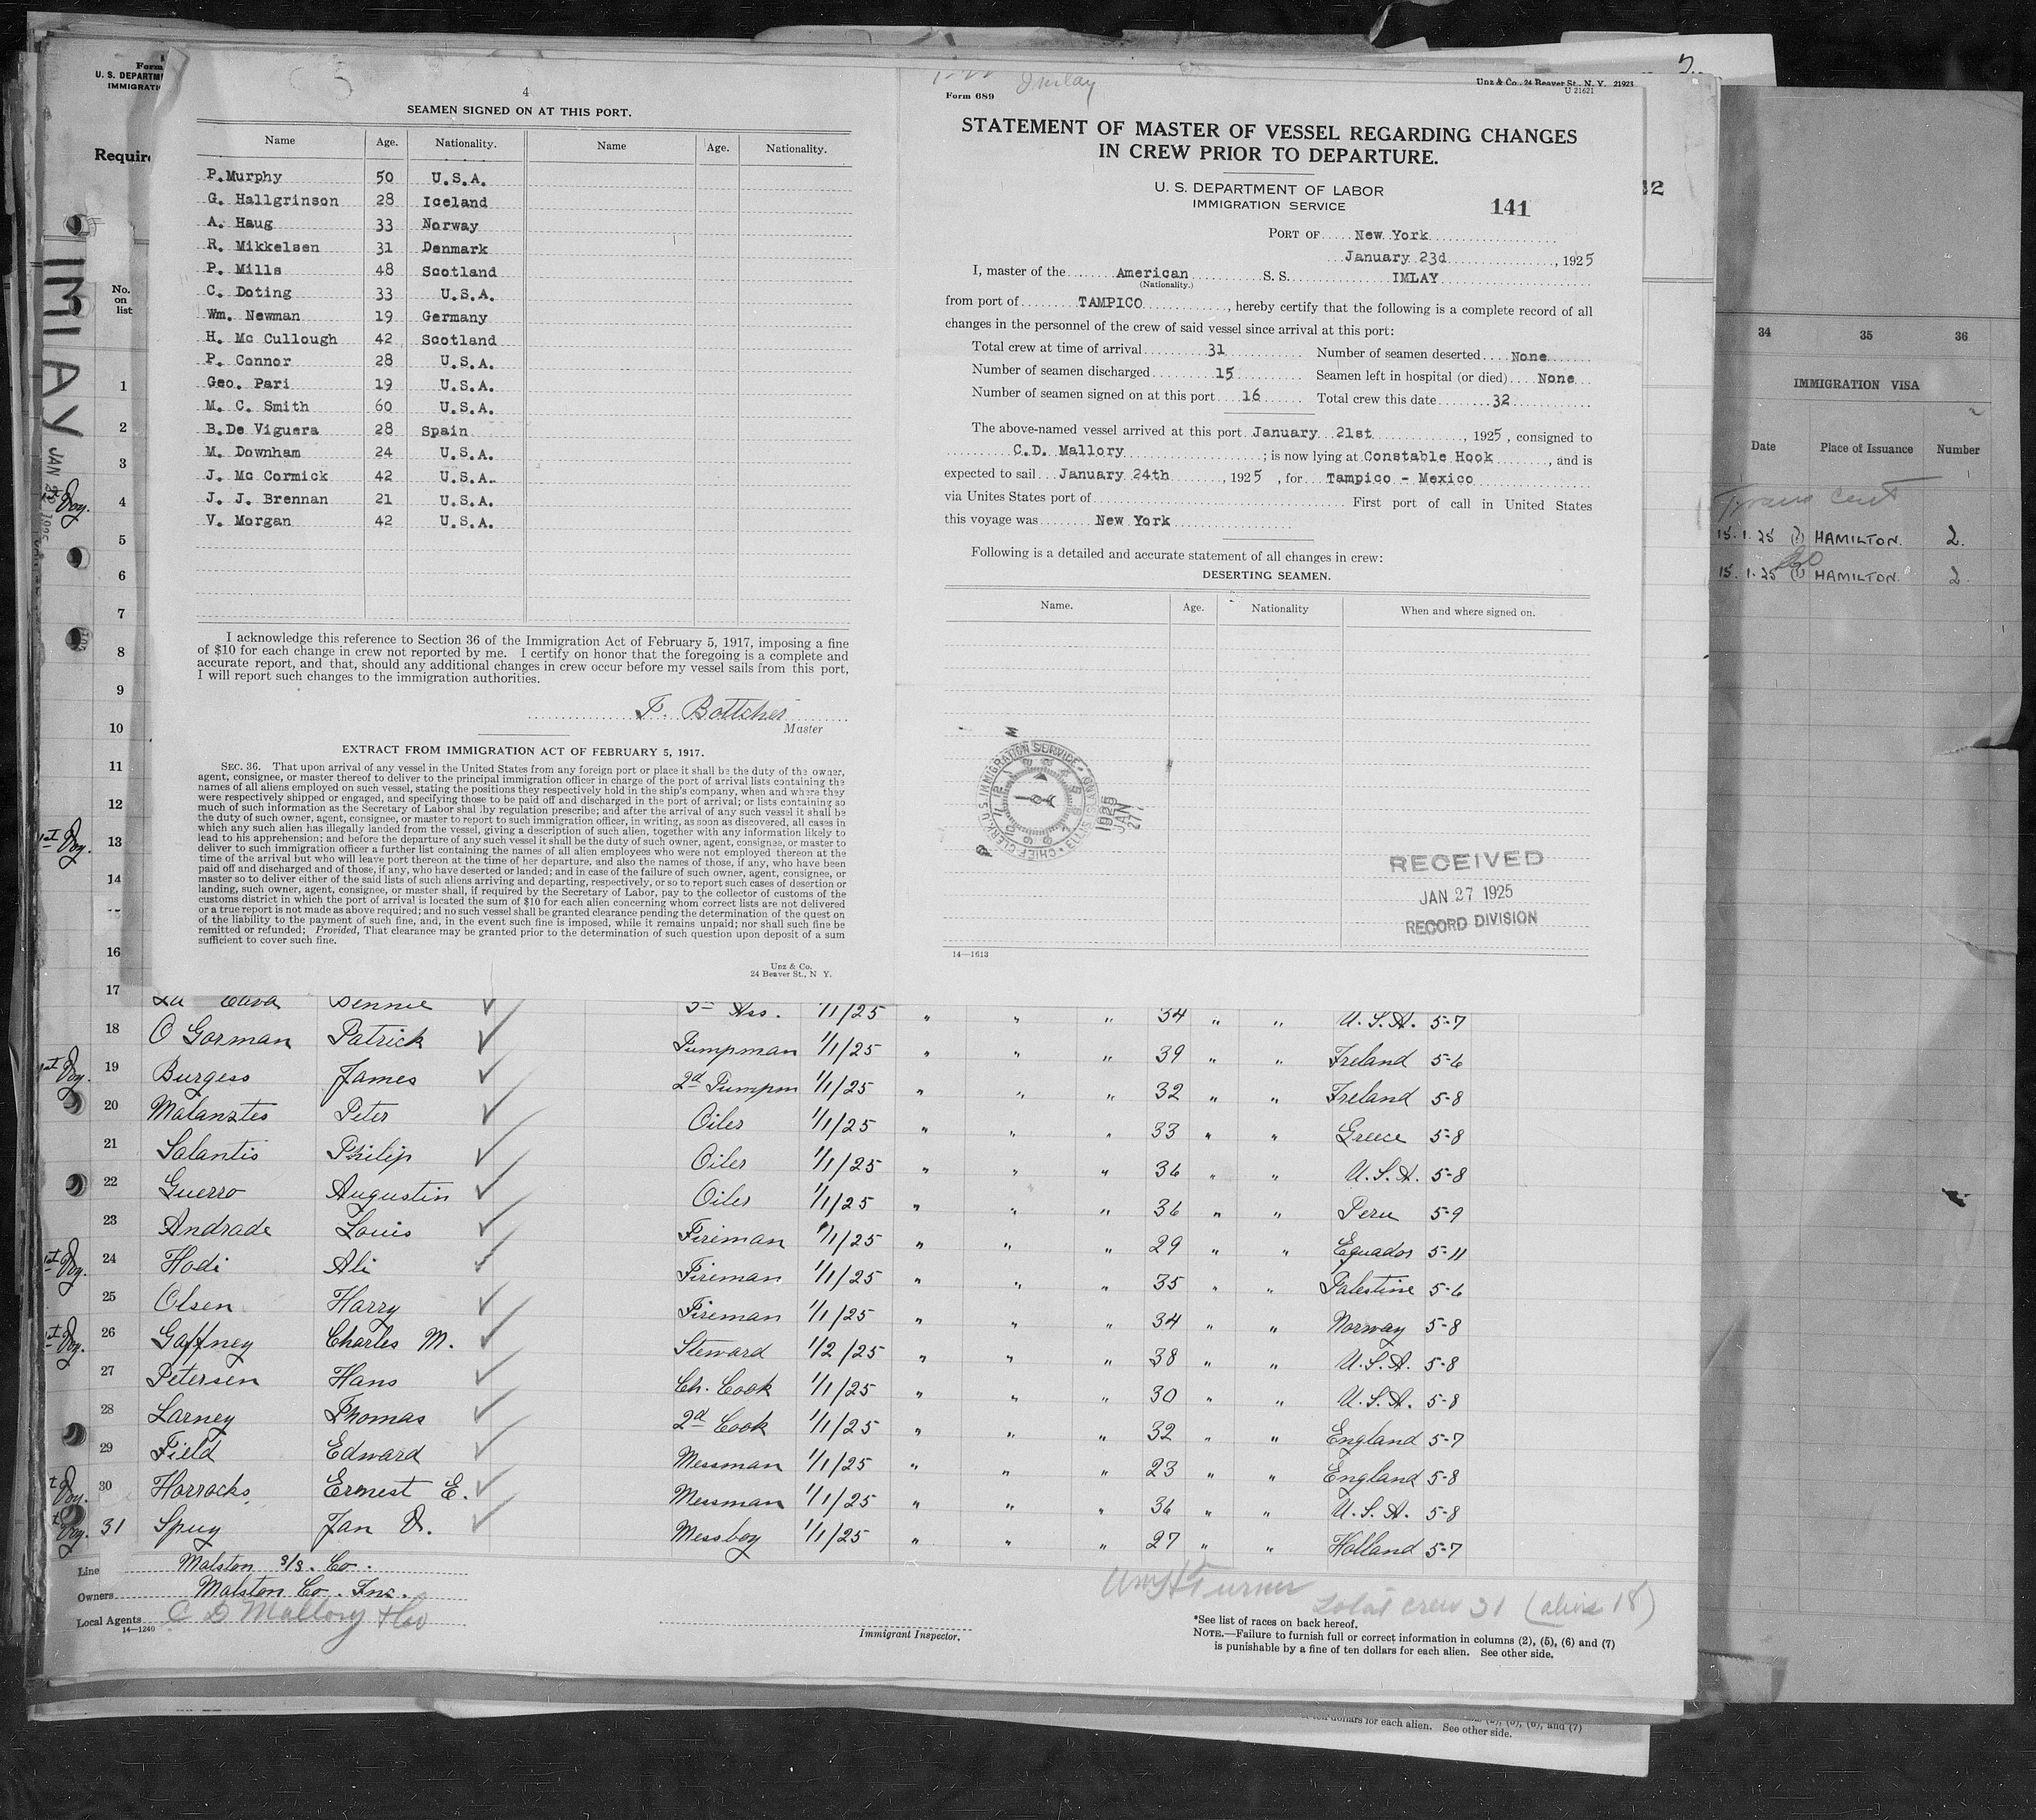 Form
U. S. DEPARTM
IMMIGRATI
Require
No.
on
list
IMLAY
5
4
SEAMEN SIGNED ON AT THIS PORT.
Name Age. Nationality. Name Age. Nationality.
P.Murphy 50 U.S.A.
G. Hallgrinson 28 Iceland
A. Haug 33 Norway
R. Mikkelsen 31 Denmark
P. Mills 48 Scotland
C. Doting 33 U.S.A.
Wm. Newman 19 Germany
H. Mc Cullough 42 Scotland
P. Connor 28 U.S.A.
Geo. Pari 19 U.S.A.
M. C. Smith 60 U.S.A.
B.De Viguera 28 Spain
M. Downham 24 U.S.A.
J. Mc Cormick 42 U.S.A.
J. J. Brennan 21 U.S.A.
V. Morgan 42 U.S.A.
I acknowledge this reference to Section 36 of the Immigration Act of February 5, 1917, imposing a fine
of $10 for each change in crew not reported by me. I certify on honor that the foregoing is a complete and
accurate report, and that, should any additional changes in crew occur before my vessel sails from this port,
I will report such changes to the immigration authorities.
F. Bottcher
Master
EXTRACT FROM IMMIGRATION ACT OF FEBRUARY 5, 1917.
SEC. 36. That upon arrival of any vessel in the United States from any foreign port or place it shall be the duty of the owner,
agent, consignee, or master thereof to deliver to the principal immigration officer in charge of the port of arrival lists containing the
names of all aliens employed on such vessel, stating the positions they respectively hold in the ship's company, when and where they
were respectively shipped or engaged, and specifying those to be paid off and discharged in the port of arrival; or lists containing so
much of such information as the Secretary of Labor shal by regulation prescribe; and after the arrival of any such vessel it shall be
the duty of such owner, agent, consignee, or master to report to such immigration officer, in writing, as soon as discovered, all cases in
which any such alien has illegally landed from the vessel, giving a description of such alien, together with any information likely to
lead to his apprehension; and before the departure of any such vessel it shall be the duty of such owner, agent, consignee, or master to
deliver to such immigration officer a further list containing the names of all alien employees who were not employed thereon at the
time of the arrival but who will leave port thereon at the time of her departure, and also the names of those, if any, who have been
paid off and discharged and of those, if any, who have deserted or landed; and in case of the failure of such owner, agent, consignee, or
master so to deliver either of the said lists of such aliens arriving and departing, respectively, or so to report such cases of desertion or
landing, such owner, agent, consignee, or master shall, if required by the Secretary of Labor, pay to the collector of customs of the
customs district in which the port of arrival is located the sum of $10 for each alien concerning whom correct lists are not delivered
or a true report is not made as above required; and no such vessel shall be granted clearance pending the determination of the quest on
of the liability to the payment of such fine, and, in the event such fine is imposed, while it remains unpaid; nor shall such fine be
remitted or refunded; Provided, That clearance may be granted prior to the determination of such question upon deposit of a sum
sufficient to cover such fine.
Unz & Co.
24 Beaver St., N Y.
Imlay
Form 689
Unz & Co. 24 Beaver St., N. Y. 21923
U 21621
STATEMENT OF MASTER OF VESSEL REGARDING CHANGES
IN CREW PRIOR TO DEPARTURE.
U. S. DEPARTMENT OF LABOR
IMMIGRATION SERVICE
141
PORT OF New York
January 23d, 1925
I, master of the American S. S. IMLAY
(Nationality.)
from port of TAMPICO, hereby certify that the following is a complete record of all
changes in the personnel of the crew of said vessel since arrival at this port:
Total crew at time of arrival 31 Number of seamen deserted None
Number of seamen discharged 15 Seamen left in hospital (or died) None
Number of seamen signed on at this port 16 Total crew this date 32
The above-named vessel arrived at this port January 21st, 1925, consigned to
C.D. Mallory; is now lying at Constable Hook, and is
expected to sail January 24th, 1925, for Tampico - Mexico
via Unites States port of First port of call in United States
this voyage was New York
Following is a detailed and accurate statement of all changes in crew:
DESERTING SEAMEN.
Name. Age. Nationality When and where signed on.
CHIEF CLERK U.S. IMMIGRATION SERVICE ELLIS ISLAND
1925
JAN
27
RECEIVED
JAN 27 1925
RECORD DIVISION
14—1613
34 35 36
IMMIGRATION VISA
Date Place of Issuance Number
15.1.25 HAMILTON. 2.
15.1.25 HAMILTON. 2
1
2
3
4
5
6
7
8
9
10
11
12
1st Voy. 13
14
16
17 Bennie 3rd Ass. 1/1/25 " " " 34 " " U.S.A. 5-7
18 O Gorman Patrick Pumpman 1/1/25 " " " 39 " " Ireland 5-6
1st Voy. 19 Burgess James 2d Pumpm 1/1/25 " " " 32 " " Ireland 5-8
20 Malanztes Peter Oiler 1/1/25 " " " 33 " " Greece 5-8
21 Salantis Philip Oiler 1/1/25 " " " 36 " " U.S.A. 5-8
22 Guerro Augustin Oiler 1/1/25 " " " 36 " " Peru 5-9
23 Andrade Louis Fireman 1/1/25 " " " 29 " " Equador 5-11
1st Voy. 24 Hodi Ali Fireman 1/1/25 " " " 35 " " Palestine 5-6
25 Olsen Harry Fireman 1/1/25 " " " 34 " " Norway 5-8
1st Voy. 26 Gaffney Charles M. Steward 1/2/25 " " " 38 " " U.S.A. 5-8
27 Petersen Hans Ch. Cook 1/1/25 " " " 30 " " U.S.A. 5-8
28 Larney Thomas 2d Cook 1/1/25 " " " 32 " " England 5-7
29 Field Edward Messman 1/1/25 " " " 23 " " England 5-8
Voy. 30 Horrocks Ernest E. Messman 1/1/25 " " " 36 " " U.S.A. 5-8
Voy. 31 Spuy Jan D. Messboy 1/1/25 " " " 27 " " Holland 5-7
Line Malston S/S. Co.
Owners Malston Co. Inc.
Local Agents C D Mallory & Co
14—1240
Immigrant Inspector.
Wm H Turner
Total crew 31 (aliens 18)
*See list of races on back hereof.
NOTE.—Failure to furnish full or correct information in columns (2), (5), (6) and (7)
is punishable by a fine of ten dollars for each alien. See other side.
of ten dollars for each alien. See other side.